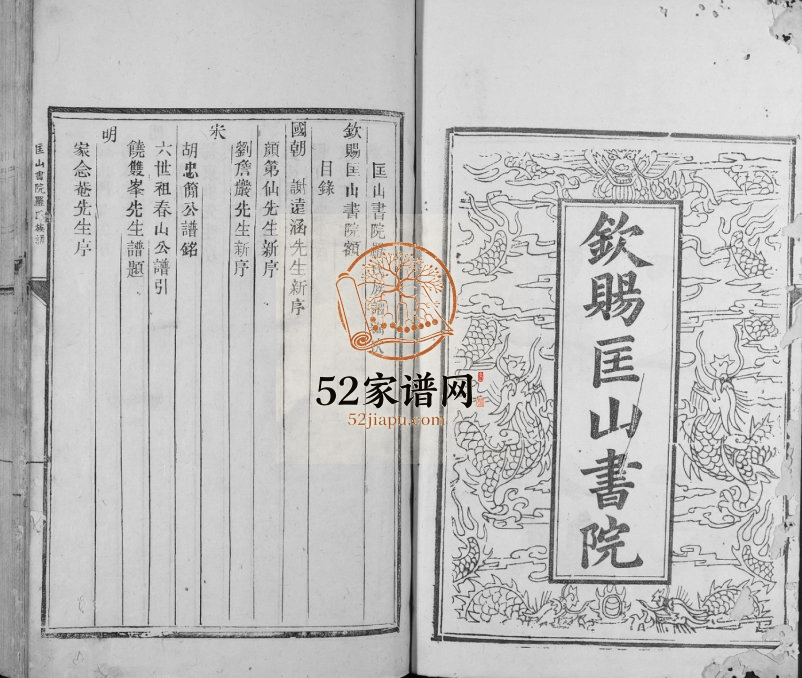 欽賜匡山書院
匡山書院羅氏族譜
欽賜匡山書院額
目錄
國朝 謝蓬涵先生新序
顏第仙先生新序
劉詹巖先生新序
宋
胡忠簡公譜銘
六世祖春山公譜引
饒雙峯先生譜題
明
家念菴先生序
匡山書院羅氏族譜
52家谱网
52jiapu.com